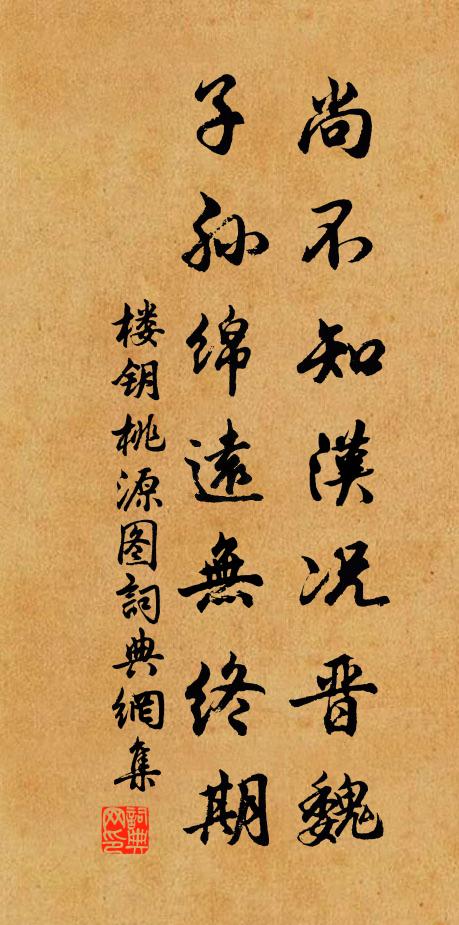 尚不知漢况晋魏
子孙綿遠無終期
楼钥桃源图詞典網集
詞典网印